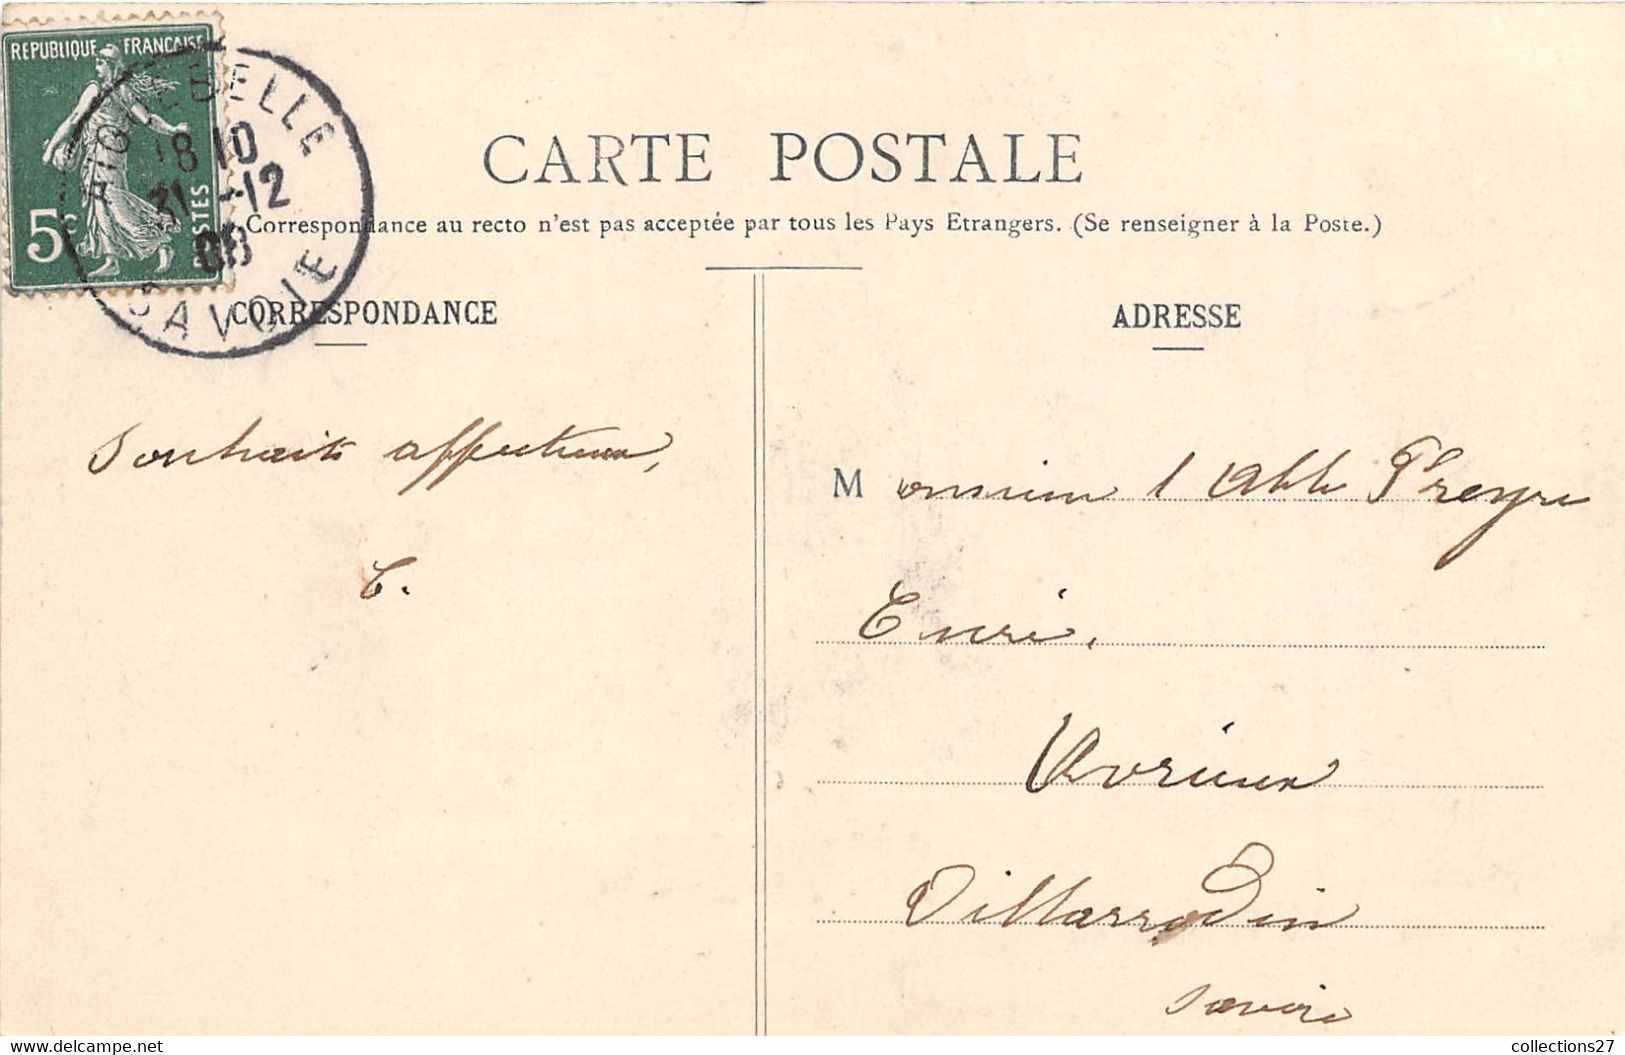 REPUBLIQUE FRANÇAISE
5c
POSTES
AIGUEBELLE
18 10
31 -12
08
SAVOIE
CARTE POSTALE
Correspondance au recto n'est pas acceptée par tous les Pays Etrangers. (Se renseigner à la Poste.)
CORRESPONDANCE
Souhaits affectueux,
C.
ADRESSE
Monsieur l'Abbé
Curé,
Avrieux
Villarrodin
Savoie
delcampe.net
collections27